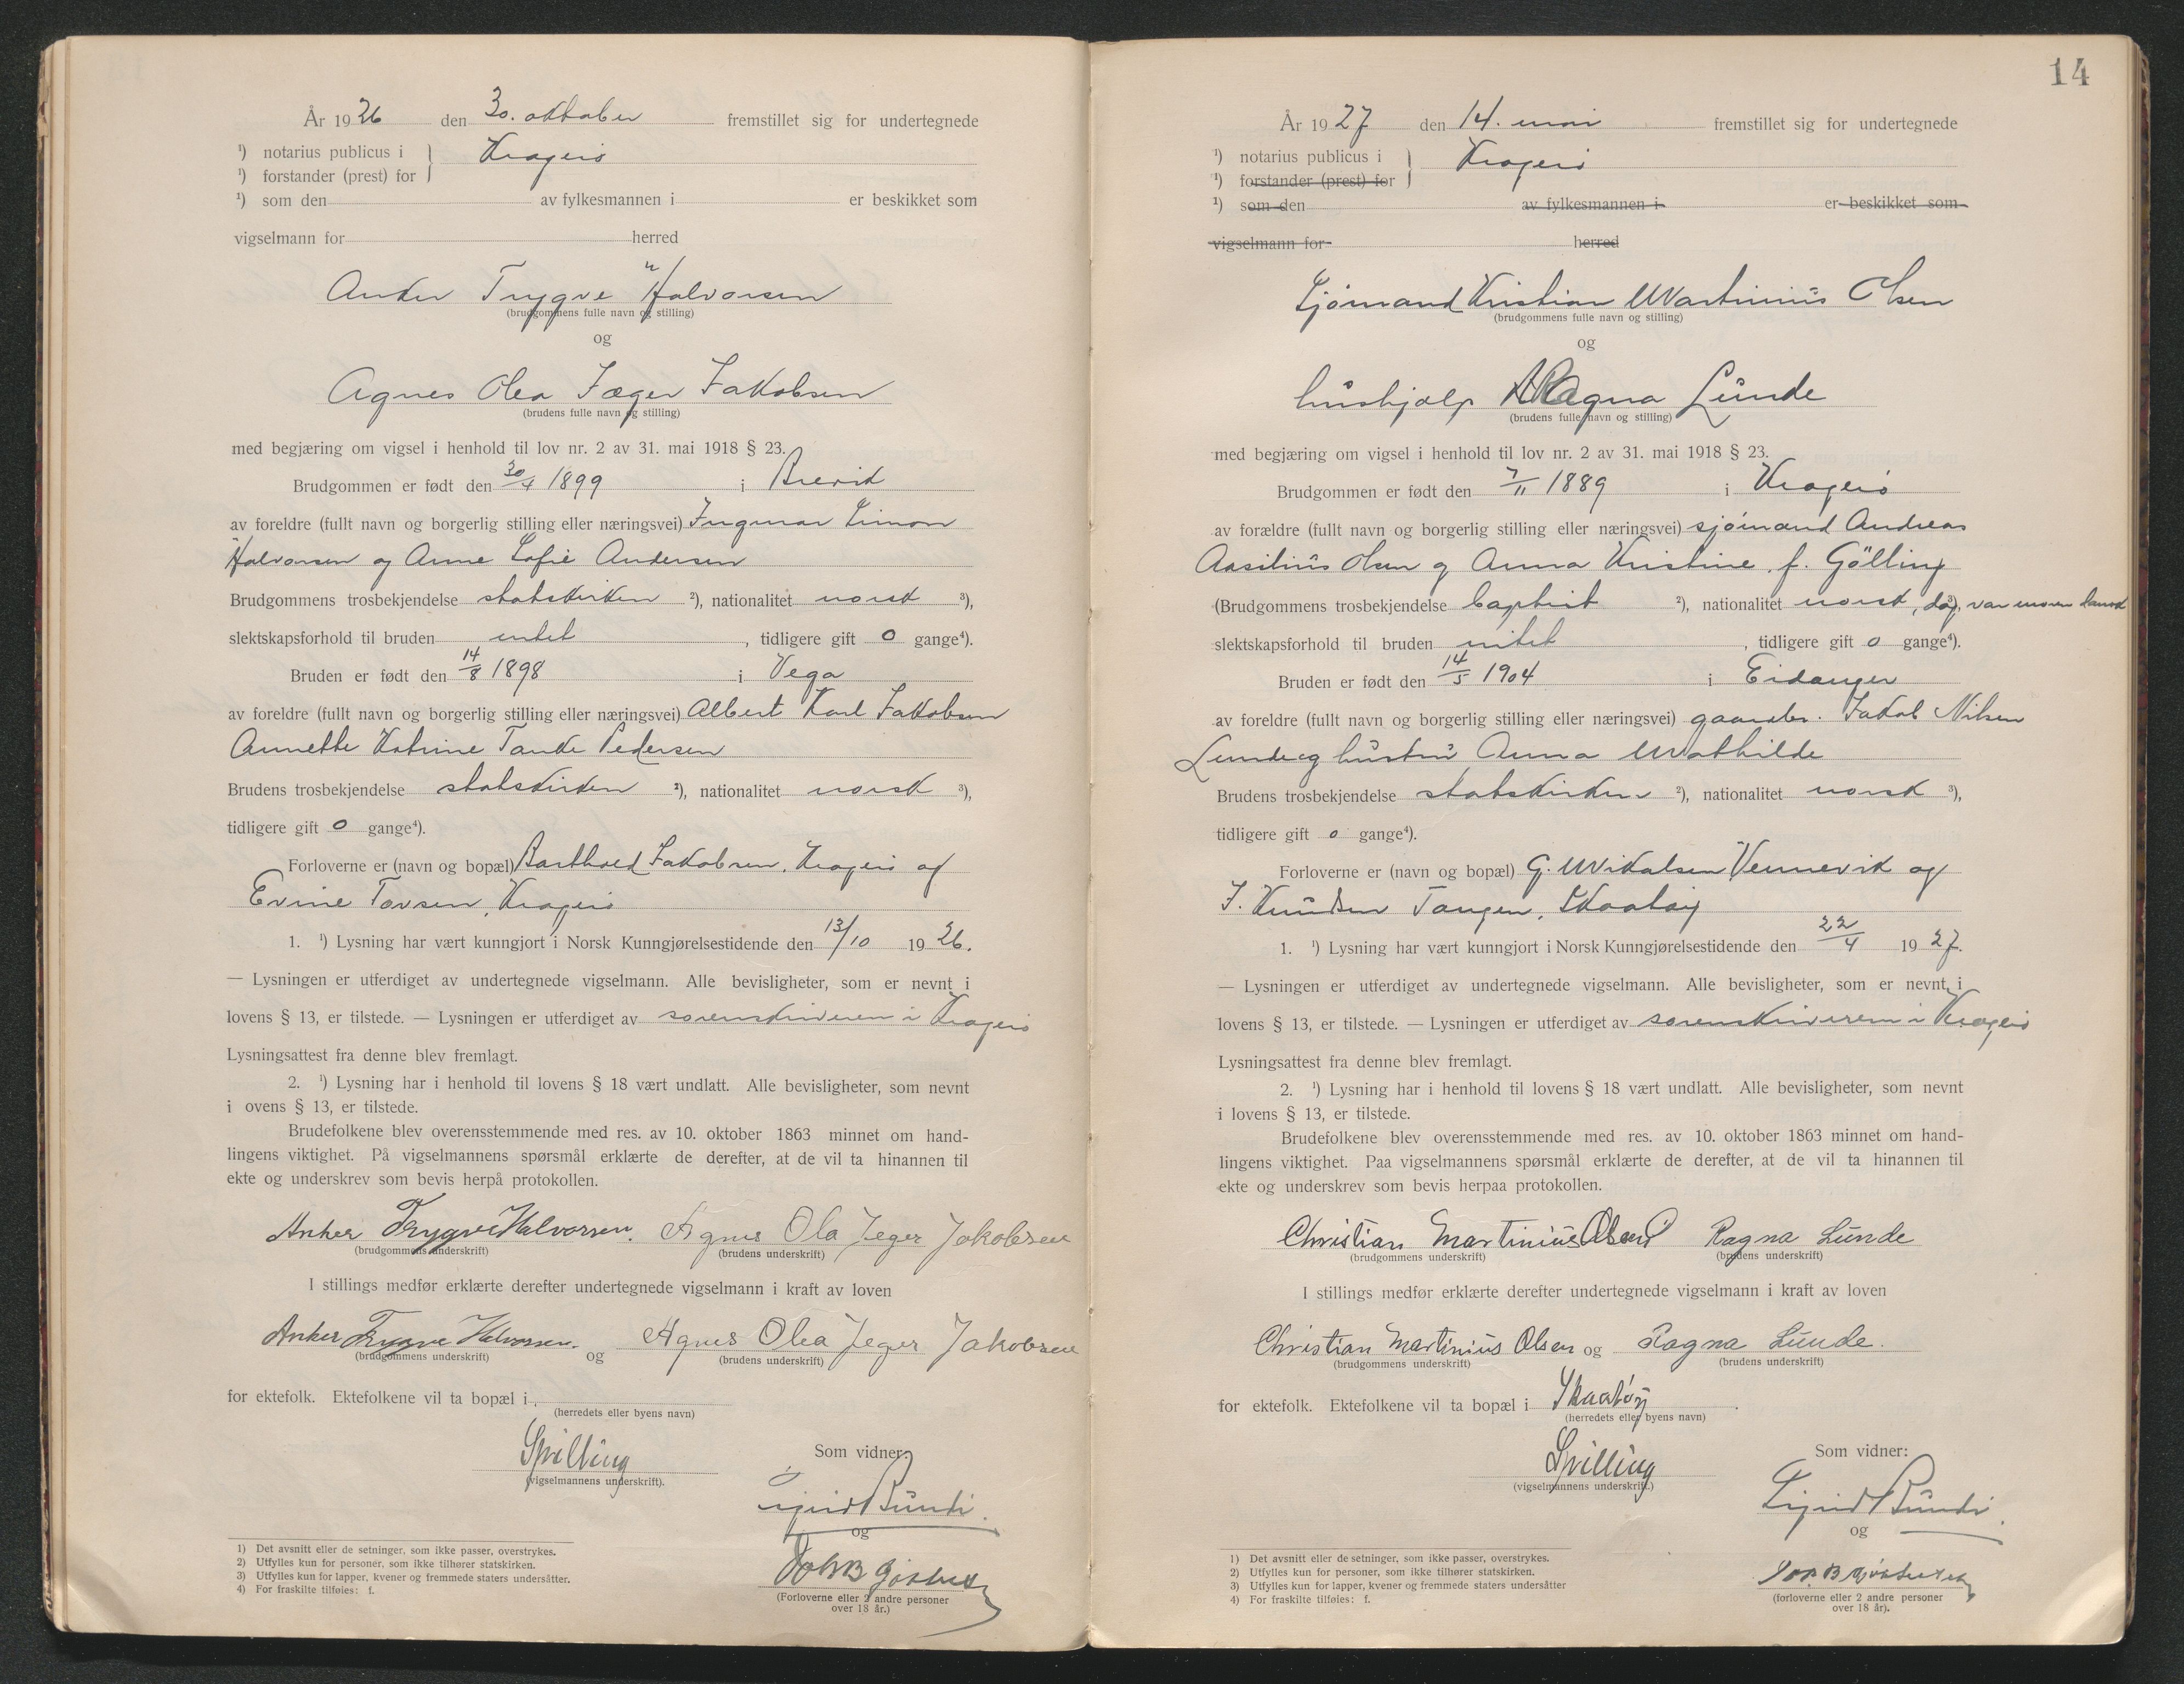 År 1926 den 30. oktober fremstillet sig for undertegnede
¹) notarius publicus i } Kragerø
¹) forstander (prest) for
¹) som den av fylkesmannen i er beskikket som
vigselmann for herred
Anker Trygve Halvorsen
(brudgommens fulle navn og stilling)
og
Agnes Olea Jæger Jakobsen
(brudens fulle navn og stilling)
med begjæring om vigsel i henhold til lov nr. 2 av 31. mai 1918 § 23.
Brudgommen er født den 30/4 1899 i Brevik
av foreldre (fullt navn og borgerlig stilling eller næringsvei) Ingmar Simon
Halvorsen og Anne Sofie Andersen
Brudgommens trosbekjendelse statskirken ²), nationalitet norsk ³),
slektskapsforhold til bruden intet, tidligere gift 0 gange⁴).
Bruden er født den 14/8 1898 i Vega
av foreldre (fullt navn og borgerlig stilling eller næringsvei) Albert Karl Jakobsen
Annette Katrine Tande Pedersen
Brudens trosbekjendelse statskirken ²), nationalitet norsk ³),
tidligere gift 0 gange⁴).
Forloverne er (navn og bopæl) Barthold Jakobsen, Kragerø og
Evine Tovsen, Kragerø
1. ¹) Lysning har vært kunngjort i Norsk Kunngjørelsestidende den 13/10 1926.
— Lysningen er utferdiget av undertegnede vigselmann. Alle bevisligheter, som er nevnt i
lovens § 13, er tilstede. — Lysningen er utferdiget av sorenskriveren i Kragerø
Lysningsattest fra denne blev fremlagt.
2. ¹) Lysning har i henhold til lovens § 18 vært undlatt. Alle bevisligheter, som nevnt
i ovens § 13, er tilstede.
Brudefolkene blev overensstemmende med res. av 10. oktober 1863 minnet om hand-
lingens viktighet. På vigselmannens spørsmål erklærte de derefter, at de vil ta hinannen til
ekte og underskrev som bevis herpå protokollen.
Anker Trygve Halvorsen. Agnes Ola Jeger Jakobsen
(brudgommens underskrift) (brudens underskrift)
I stillings medfør erklærte derefter undertegnede vigselmann i kraft av loven
Anker Trygve Halvorsen. og Agnes Olea Jeger Jakobsen
(brudgommens underskrift) (brudens underskrift)
for ektefolk. Ektefolkene vil ta bopæl i
(herredets eller byens navn)
Spilling Som vidner:
(vigselmannens underskrift).
Sigrid Bundi.
og
(Forloverne eller 2 andre personer
over 18 år.)
1) Det avsnitt eller de setninger, som ikke passer, overstrykes.
2) Utfylles kun for personer, som ikke tilhører statskirken.
3) Utfylles kun for lapper, kvener og fremmede staters undersåtter.
4) For fraskilte tilføies: f.
14
År 1927 den 14. mai fremstillet sig for undertegnede
¹) notarius publicus i } Kragerø
¹) forstander (prest) for
¹) som den av fylkesmannen i er beskikket som
vigselmann for herred
Sjømand Kristian Martinius Olsen
(brudgommens fulle navn og stilling)
og
hushjælp Ragna Lunde
(brudens fulle navn og stilling)
med begjæring om vigsel i henhold til lov nr. 2 av 31. mai 1918 § 23.
Brudgommen er født den 7/11 1889 i Kragerø
av forældre (fullt navn og borgerlig stilling eller næringsvei) sjømand Andreas
Aasilius Olsen og Anna Kristine, f. Gölling
(Brudgommens trosbekjendelse baptist ²), nationalitet norsk, dog var moren dansk
slektskapsforhold til bruden intet, tidligere gift 0 gange⁴).
Bruden er født den 14/5 1904 i Eidanger
av foreldre (fullt navn og borgerlig stilling eller næringsvei) gaardbr. Jakob Nilsen
Lunde og hustru Anna Mathilde
Brudens trosbekjendelse statskirken ²), nationalitet norsk ³),
tidligere gift 0 gange⁴).
Forloverne er (navn og bopæl) G. Mikalsen Vennevik og
J. Knudsen Tangen, Skaatøy
1. ¹) Lysning har vært kunngjort i Norsk Kunngjørelsestidende den 22/4 1927.
— Lysningen er utferdiget av undertegnede vigselmann. Alle bevisligheter, som er nevnt i
lovens § 13, er tilstede. — Lysningen er utferdiget av sorenskriveren i Kragerø
Lysningsattest fra denne blev fremlagt.
2. ¹) Lysning har i henhold til lovens § 18 vært undlatt. Alle bevisligheter, som nevnt
i lovens § 13, er tilstede.
Brudefolkene blev overensstemmende med res. av 10. oktober 1863 minnet om hand-
lingens viktighet. Paa vigselmannens spørsmål erklærte de derefter, at de vil ta hinannen til
ekte og underskrev som bevis herpaa protokollen.
Christian Martinius Olsen Ragna Lunde
(brudgommens underskrift) (brudens underskrift)
I stillings medfør erklærte derefter undertegnede vigselmann i kraft av loven
Christian Martinius Olsen og Ragna Lunde.
(brudgommens underskrift) (brudens underskrift)
for ektefolk. Ektefolkene vil ta bopæl i Skaatøy.
(herredets eller byens navn)
Spilling Som vidner:
(vigselmannens underskrift.)
Sigrid Bundi.
og
(forloverne eller 2 andre personer
over 18 år).
1) Det avsnitt eller de setninger, som ikke passer, overstrykes.
2) Utfylles kun for personer, som ikke tilhører statskirken.
3) Utfylles kun for lapper, kvener og fremmede staters undersåtter
4) For fraskilte tilføies: f.